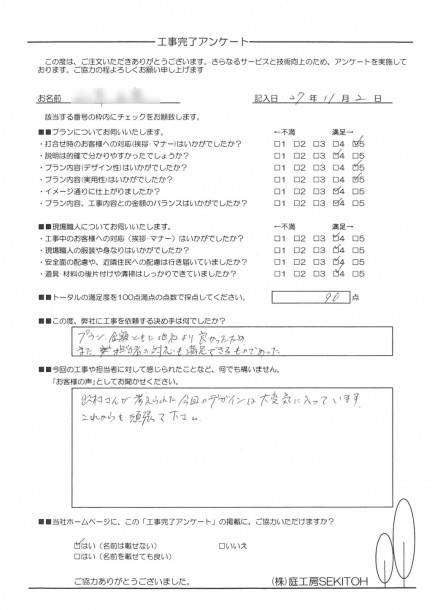 工事完了アンケート
この度は、ご注文いただきありがとうございます。さらなるサービスと技術向上のため、アンケートを実施して
おります。ご協力の程よろしくお願い申し上げます
お名前
記入日 27年 11月 2日
該当する番号の枠内にチェックをお願致します。
■■プランについてお伺いいたします。 ←不満 満足→
・打合せ時のお客様への対応(挨拶・マナー)はいかがでしたか? □1 □2 □3 □4 ☑5
・説明は的確で分かりやすかったでしょうか? □1 □2 □3 □4 ☑5
・プラン内容(デザイン性)はいかがでしたか? □1 □2 □3 □4 ☑5
・プラン内容(実用性)はいかがでしたか? □1 □2 □3 □4 ☑5
・イメージ通りに仕上がりましたか? □1 □2 □3 ☑4 □5
・プラン内容、工事内容との金額のバランスはいかがでしたか? □1 □2 □3 ☑4 □5
■■現場職人についてお伺いいたします。 ←不満 満足→
・工事中のお客様への対応（挨拶･マナー）はいかがでしたか? □1 □2 □3 ☑4 □5
・現場職人の服装や身なりはいかがでしたか? □1 □2 □3 ☑4 □5
・安全面の配慮や、近隣住民への配慮は行き届いていましたか? □1 □2 □3 ☑4 □5
・道具・材料の後片付けや清掃はしっかりできていましたか? □1 □2 □3 ☑4 □5
■■トータルの満足度を100点満点の点数で採点してください。 90 点
■■この度、弊社に工事を依頼する決め手は何でしたか?
プラン、金額ともに他社より良かったため
また 担当者の対応も満足できるものであった。
■■今回の工事や担当者に対して感じられたことなど、何でも構いません。
「お客様の声」としてお聞かせください。
さんが考えられた今回のデザインは大変気に入っています。
これからも頑張って下さい。
■■当社ホームページに、この「工事完了アンケート」の掲載に、ご協力いただけますか?
☑はい（名前は載せない） □いいえ
□はい（名前を載せても良い）
ご協力ありがとうございました。
(株)庭工房SEKITOH